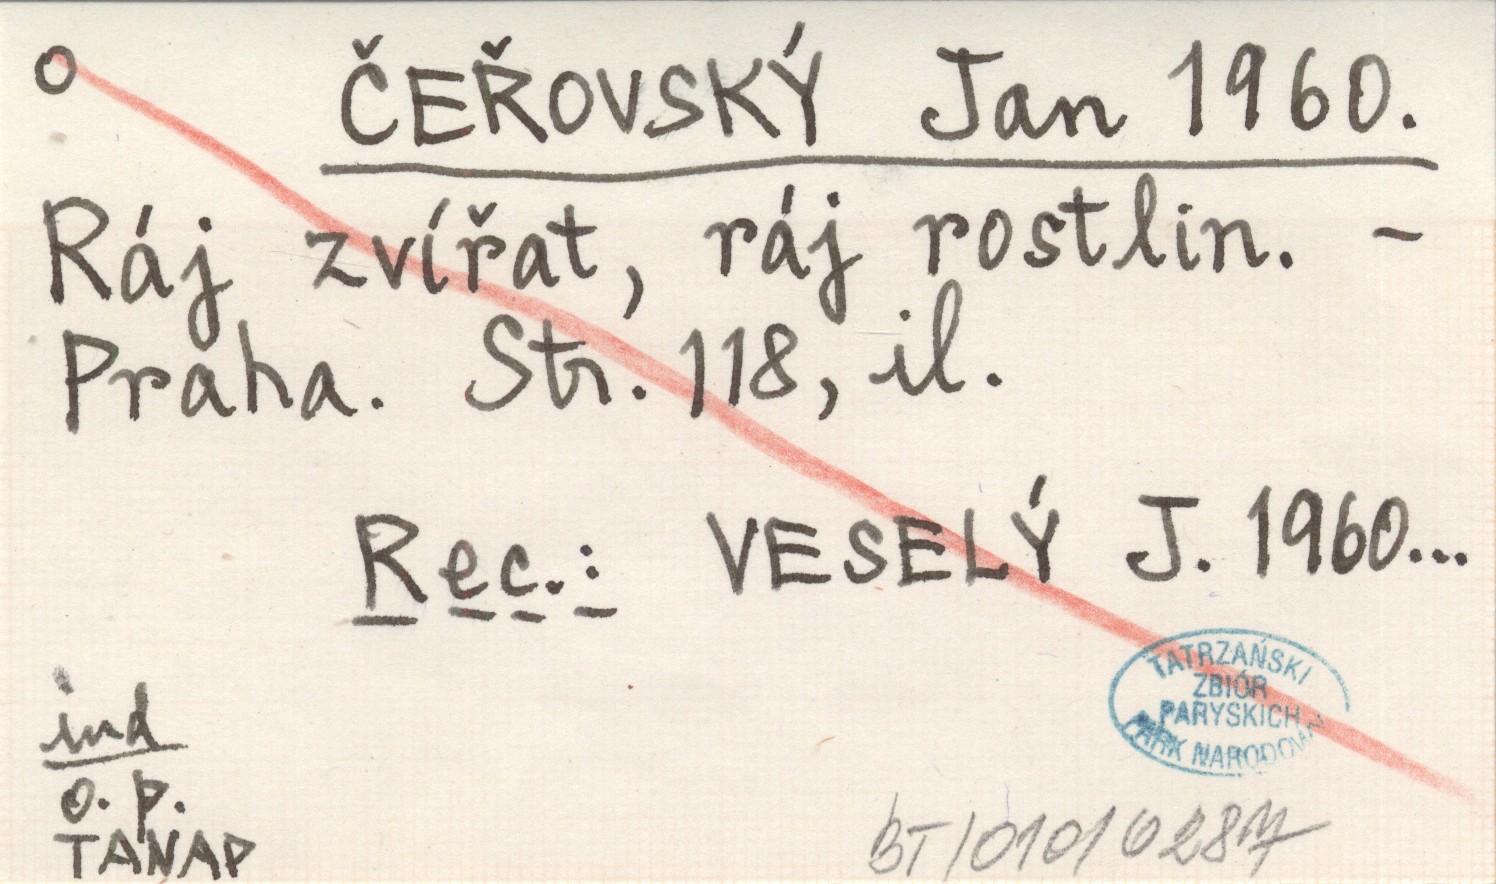 o ČEŘOVSKÝ Jan 1960.
Ráj zvířat, ráj rostlin. –
Praha. Str. 118, il.
Rec.: VESELÝ J. 1960...
TATRZAŃSKI
ZBIÓR
PARYSKICH
PARK NARODOWY
ind
o. p.
TANAP
BT/010/0287